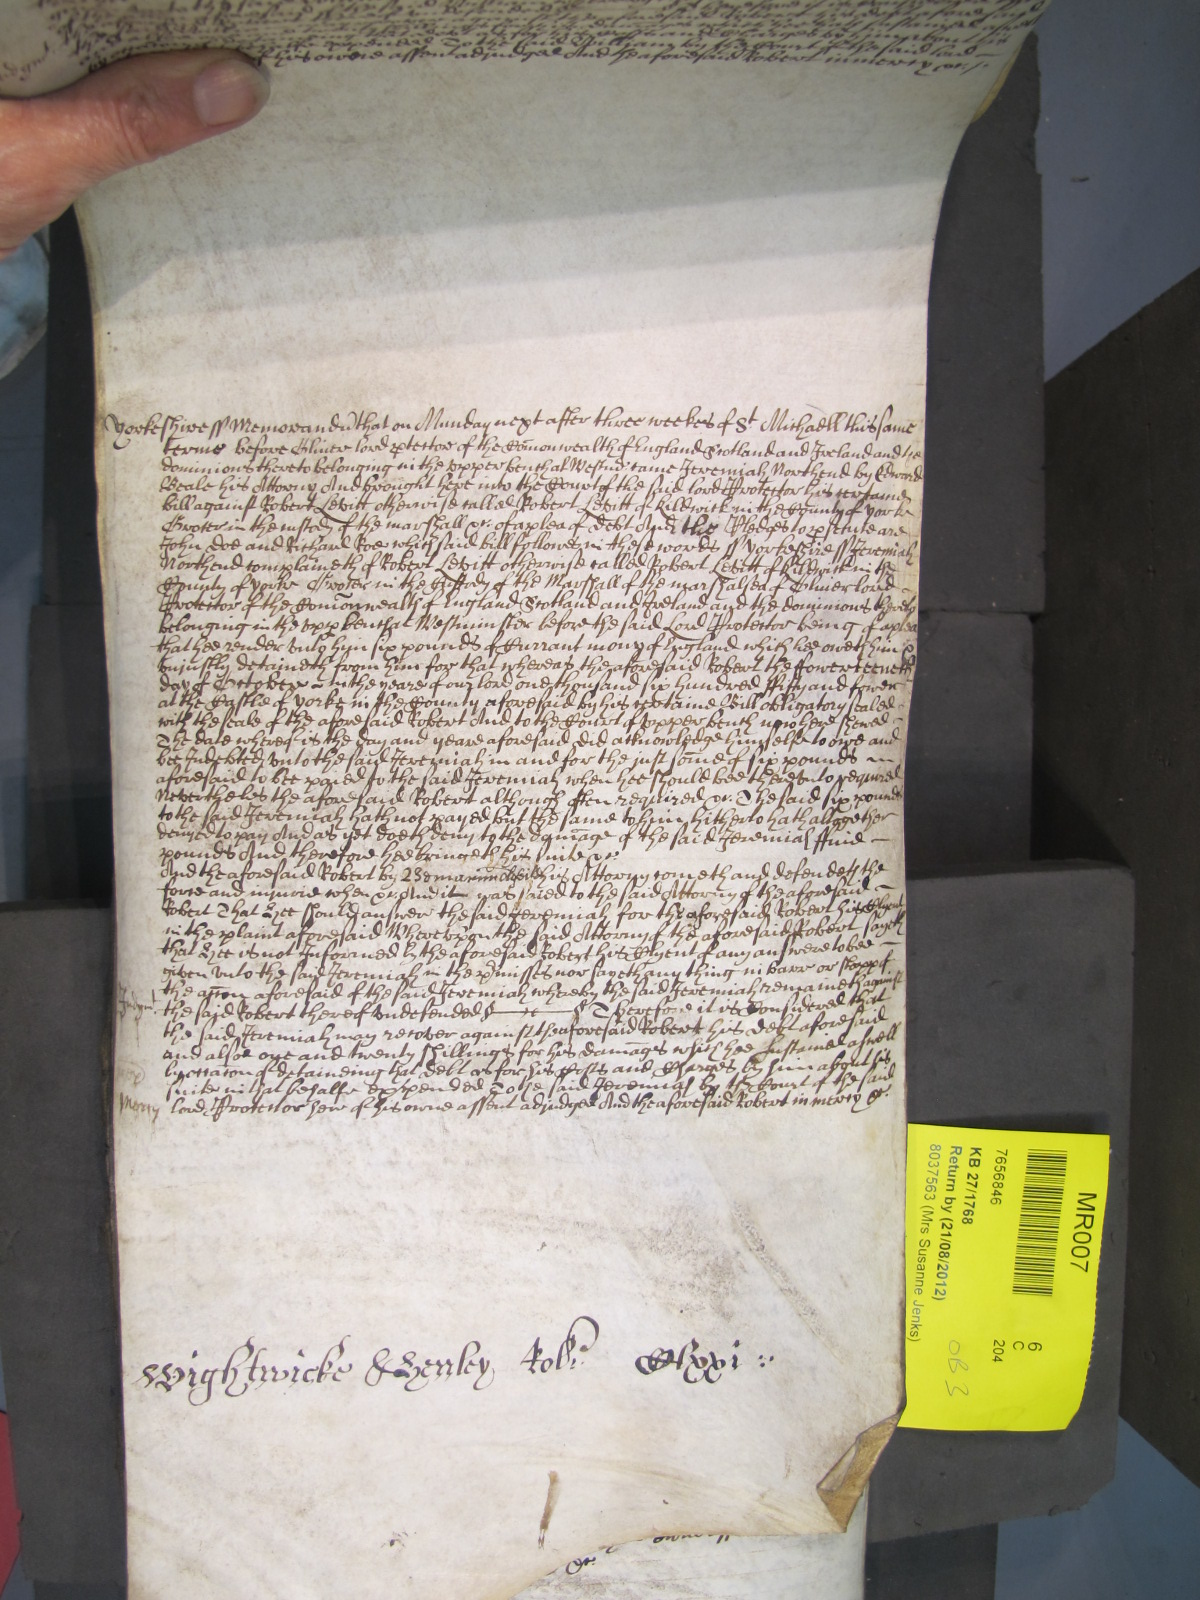 of his owne assent adjudged And the aforesaid Robert in mercy &c.
Yorkeshire ss Memorandu that on Munday next after three weekes of St Michaell this same
terme before Oliver lord ptector of the Comonwealth of England Scotland and Ireland and the
dominions thereto belonging in the upper bench at Westmr came Jeremiah Northend by Edward
Beale his Attorny And brought here into the Court of the said lord Protector his certaine
bill against Robert Levitt otherwise called Robert Levitt of Kildwick in the County of Yorke
Grocer in the custody of the marshall &c. of a plea of Debt And the Pledges to psecute are
John Doe and Richard Roe which said bill followes in these words ss Yorkeshire ss Jeremiah
Northend complaineth of Robert Levitt otherwise called Robert Levitt of Kildwick in the
County of Yorke Grocer in the Custody of the Marshall of the marshalsea of Oliver lord
Protector of the Comonwealth of England Scotland and Ireland and the dominions thereto
belonging in the upp bench at Westminster before the said Lord Protector being of a plea
that hee render unto him six pounds of Currant mony of England which hee oweth him &
uniustly detaineth from him for that whereas the aforesaid Robert the fowerteenth
day of October in the yeare of our lord one thousand six hundred Fifty and fower
at the Castle of Yorke in the County aforesaid by his certaine Bill obligatory sealed
with the seale of the aforesaid Robert And to the Court of upper bench now here shewed
The date whereof is the day and yeare aforesaid did acknowledge himselfe to owe and
bee Indebted unto the said Jeremiah in and for the just some of six pounds
aforesaid to bee payed to the said Jeremiah when hee should bee thereunto required
Neverthelesse the aforesaid Robert although often required &c. The said six pounds
to the said Jeremiah hath not payed but the same to him hitherto hath altogether
denyed to pay And as yet doeth deny to the damage of the said Jeremiah Five
pounds And therefore hee bringeth his suite &c.
And the aforesaid Robert by his Attorny cometh and defendeth the
force and iniurie when &c. And it was said to the said Attorny of the aforesaid
Robert That hee should answer the said Jeremiah for the aforesaid Robert his Clyent
in the plaint aforesaid Whereupon the said Attorny of the aforesaid Robert sayeth
that hee is not Informed by the aforesaid Robert his Clyent of any answere to bee
given unto the said Jeremiah in the pmisses nor sayeth any thing in barr or
the acon aforesaid of the said Jeremiah whereby the said Jeremiah remaineth against
Judgmt
the said Robert thereof undefended &c Therefore it is Considered that
the said Jeremiah may recover against the aforesaid Robert his Debt aforesaid
and also one and twenty shillings for his damages which hee sustained aswell
by occasion of detaineing that debt as for his Costs and Charges by him about his
suite in that behalfe expended To the said Jeremiah by the Court of the said
mercy
lord Protector here of his owne assent adjudged And the aforesaid Robert in mercy &c.
Wightwicke & Henley
MR007
6
C
204
7656846
KB 27/1768
Return by (21/08/2012)
8037563 (Mrs Susanne Jenks)
OB 3
&c.